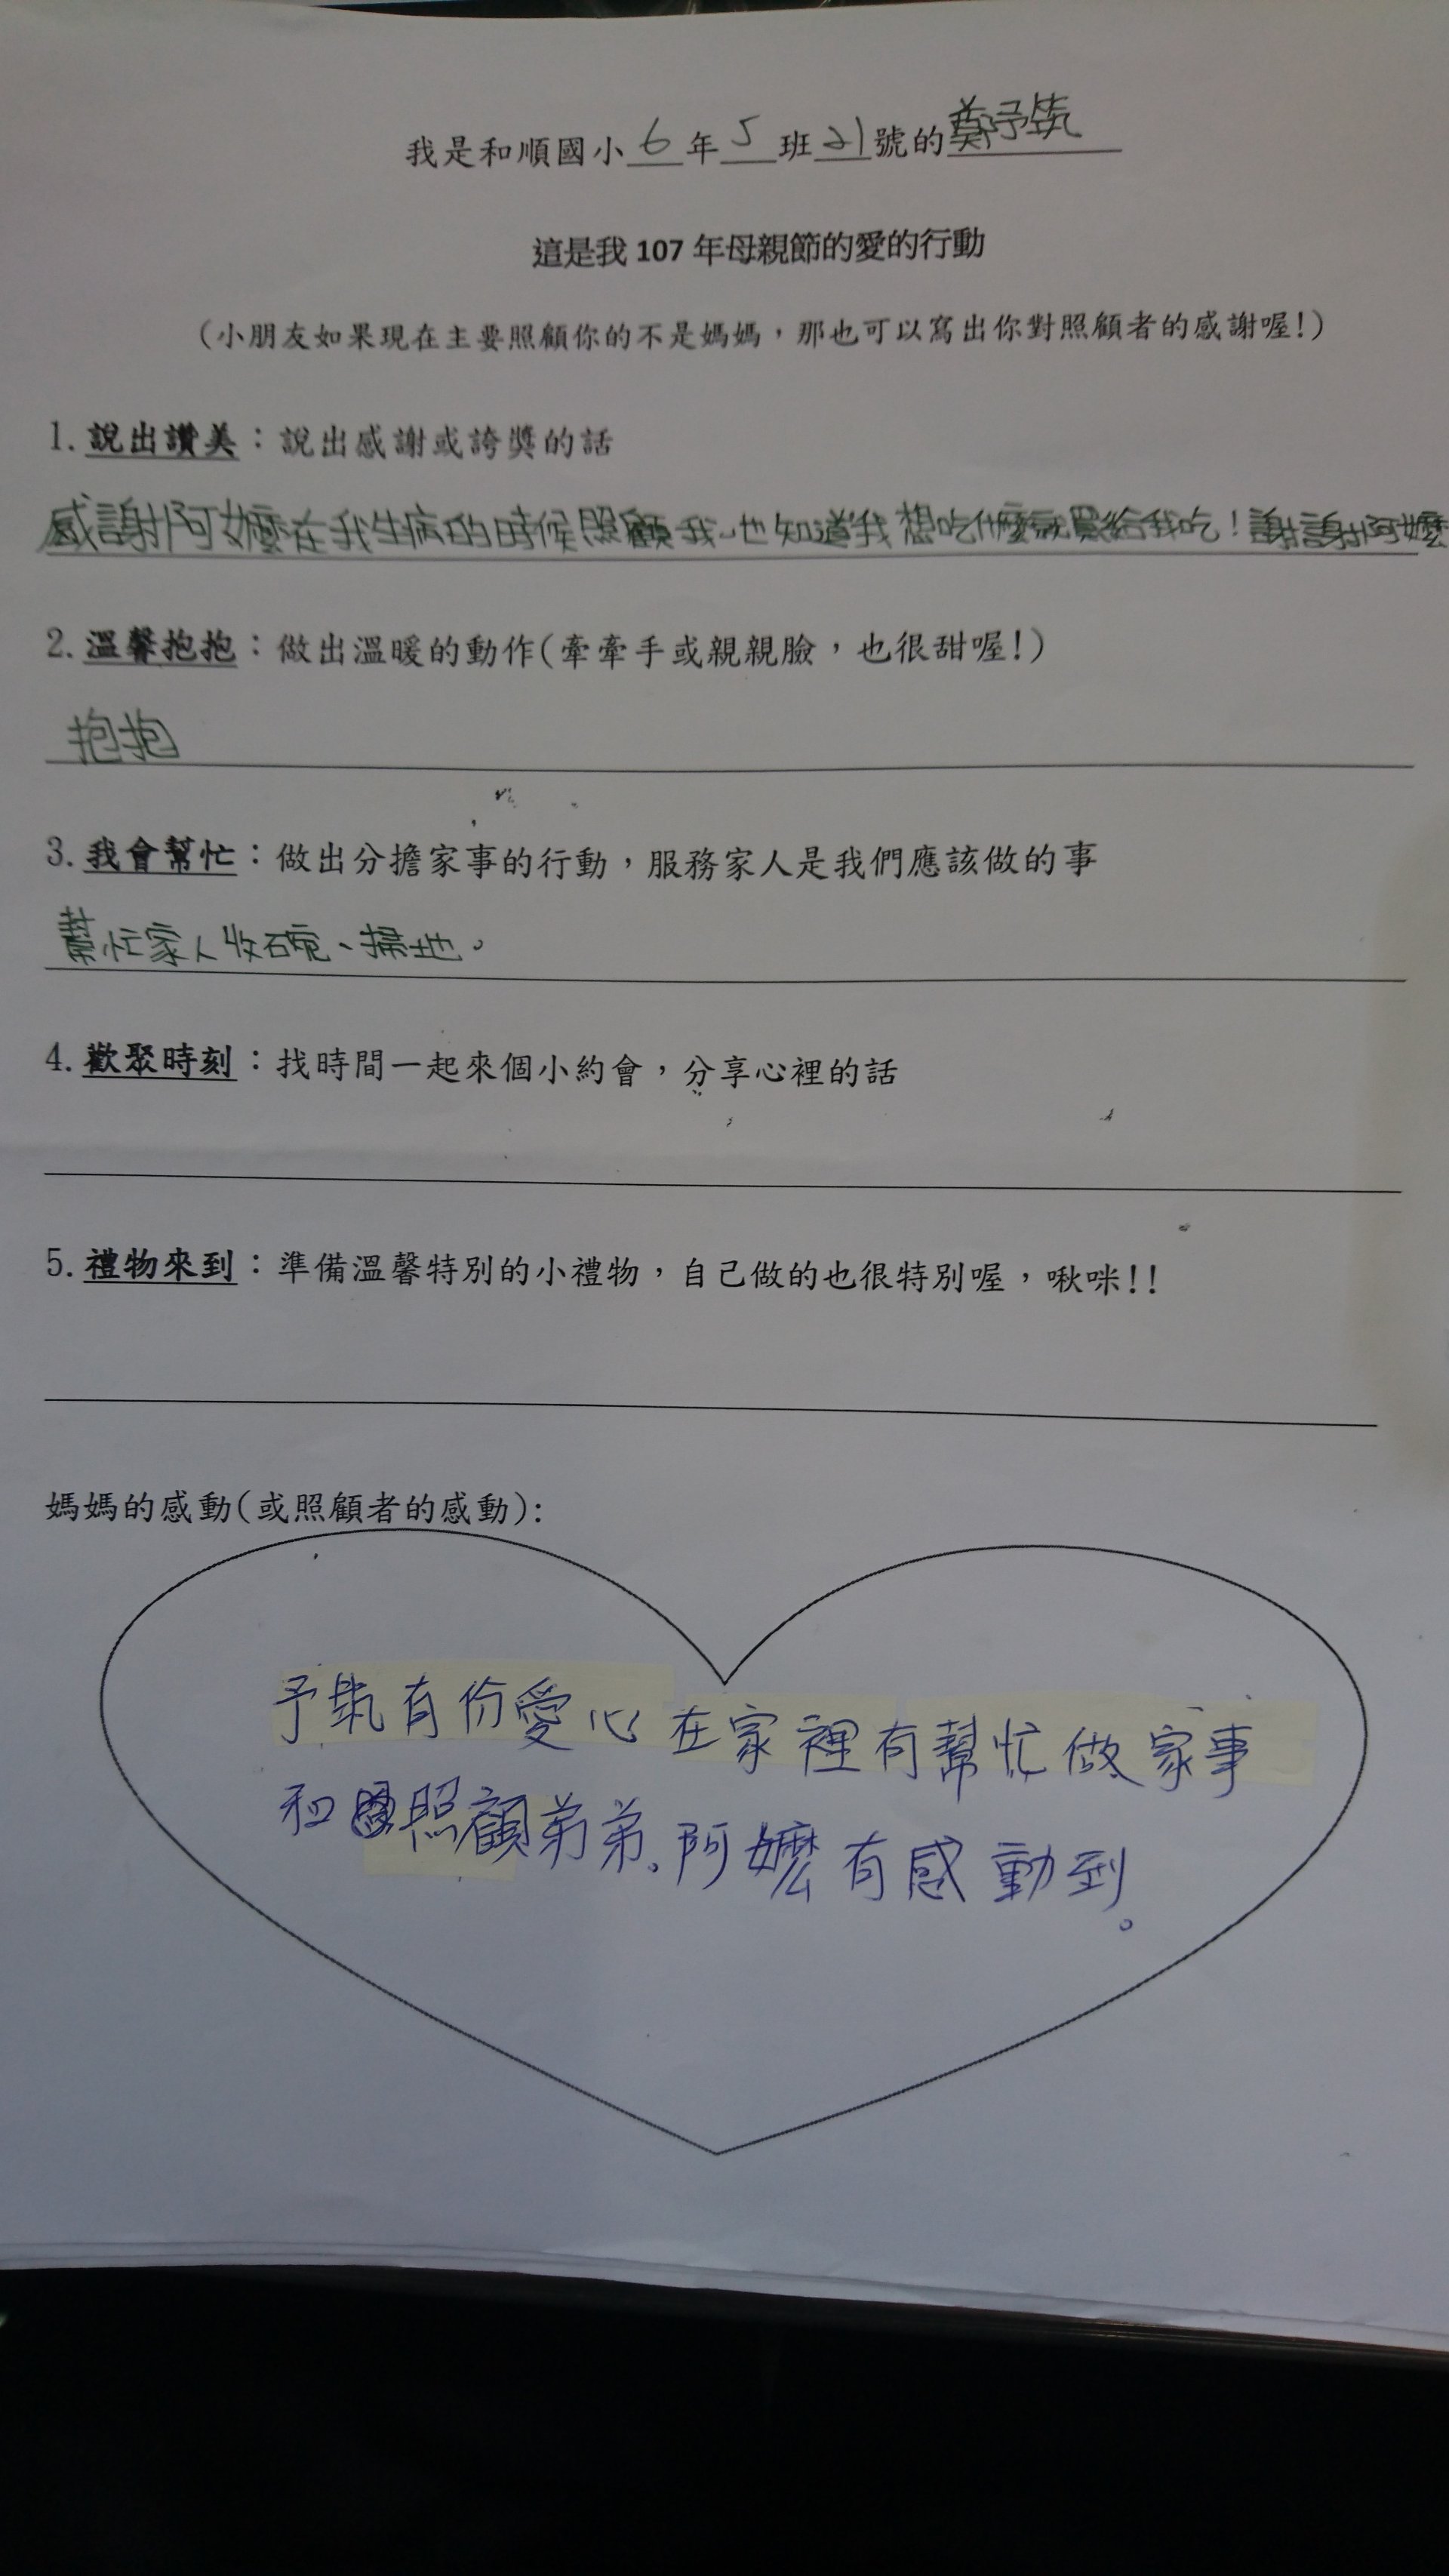 我是和順國小 6 年 5 班 21 號的 鄭予筑
這是我 107 年母親節的愛的行動
(小朋友如果現在主要照顧你的不是媽媽，那也可以寫出你對照顧者的感謝喔!)
1. 說出讚美：說出感謝或誇獎的話
感謝阿嬤在我生病的時候照顧我、也知道我想吃什麼就買給我吃！謝謝阿嬤
2. 溫馨抱抱：做出溫暖的動作(牽牽手或親親臉，也很甜喔!)
抱抱
3. 我會幫忙：做出分擔家事的行動，服務家人是我們應該做的事
幫忙家人收碗、掃地。
4. 歡聚時刻：找時間一起來個小約會，分享心裡的話
5. 禮物來到：準備溫馨特別的小禮物，自己做的也很特別喔，啾咪!!
媽媽的感動(或照顧者的感動):
予筑有份愛心在家裡有幫忙做家事
和照顧弟弟、阿嬤有感動到。